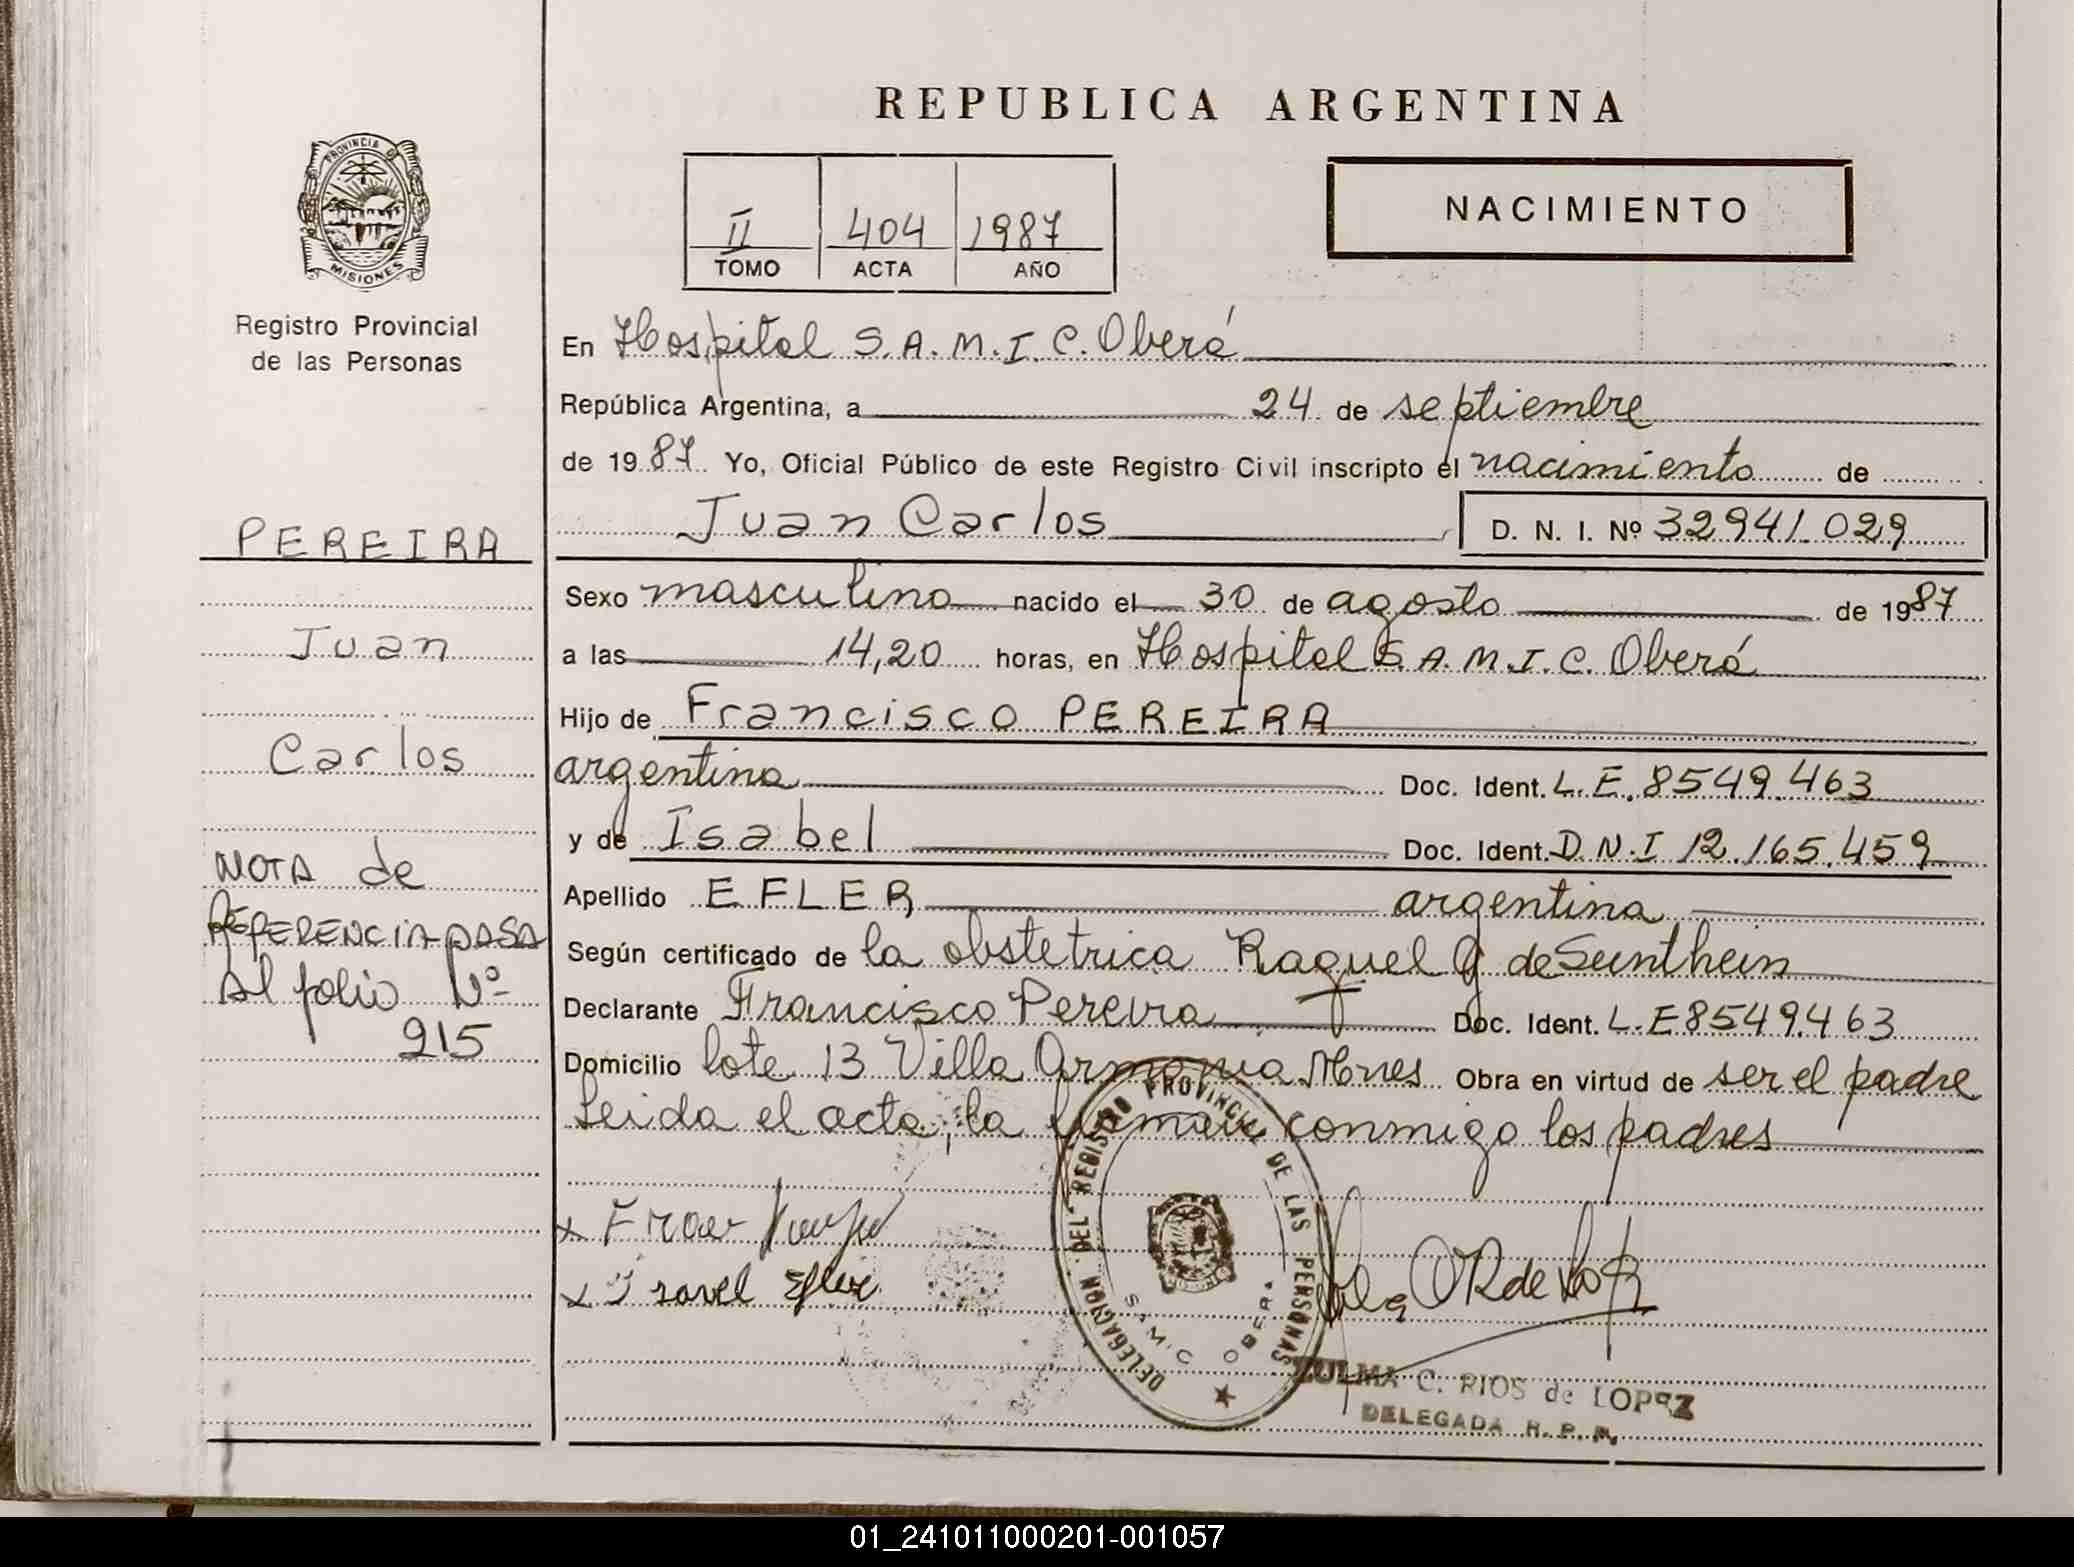 REPUBLICA ARGENTINA
PROVINCIA D
MISIONES
Registro Provincial
de las Personas
II 404 1987
TOMO ACTA AÑO
NACIMIENTO
En Hospital S.A.M.I.C. Oberá
República Argentina, a 24 de septiembre
de 1987 Yo, Oficial Público de este Registro Civil inscripto el nacimiento de
Juan Carlos D. N. I. Nº 32941.029
PEREIRA
Juan
Carlos
NOTA de
REFERENCIA PASA
al folio Nº
215
Sexo masculino nacido el 30 de agosto de 1987
a las 14,20 horas, en Hospital S.A.M.I.C. Oberá
Hijo de Francisco PEREIRA
argentino Doc. Ident. L.E. 8549.463
y de Isabel Doc. Ident. D.N.I 12.165.459
Apellido EFLER argentina
Según certificado de la obstetrica Raquel G de Sunthein
Declarante Francisco Pereira Doc. Ident. L.E 8549.463
Domicilio lote 13 Villa Armonia Mnes Obra en virtud de ser el padre
Leida el acta, la firman conmigo los padres
DELEGACION DEL REGISTRO PROVINCIAL DE LAS PERSONAS
S.A.M.I.C OBERA
x Isavel Efler
ZULMA C. RIOS de LOPEZ
DELEGADA R. P. P.
01_241011000201-001057